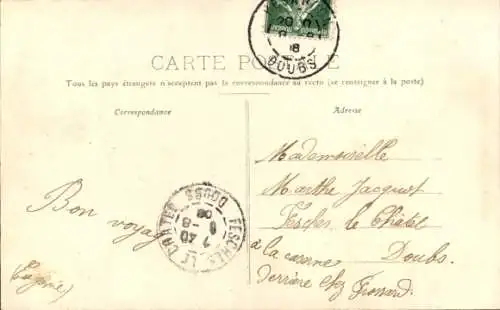 DOUBS
CARTE POSTALE
Tous les pays étrangers n'acceptent pas la correspondance au recto (se renseigner à la poste)
Correspondance
Adresse
Mademoiselle
Marthe Jacquot
Fesches le Châtel
à la caserne Doubs.
derrière chez Grossard
Bon voyage
(Eugénie)
FESCHES LE CHATEL
7 40
8 - 8
08
DOUBS